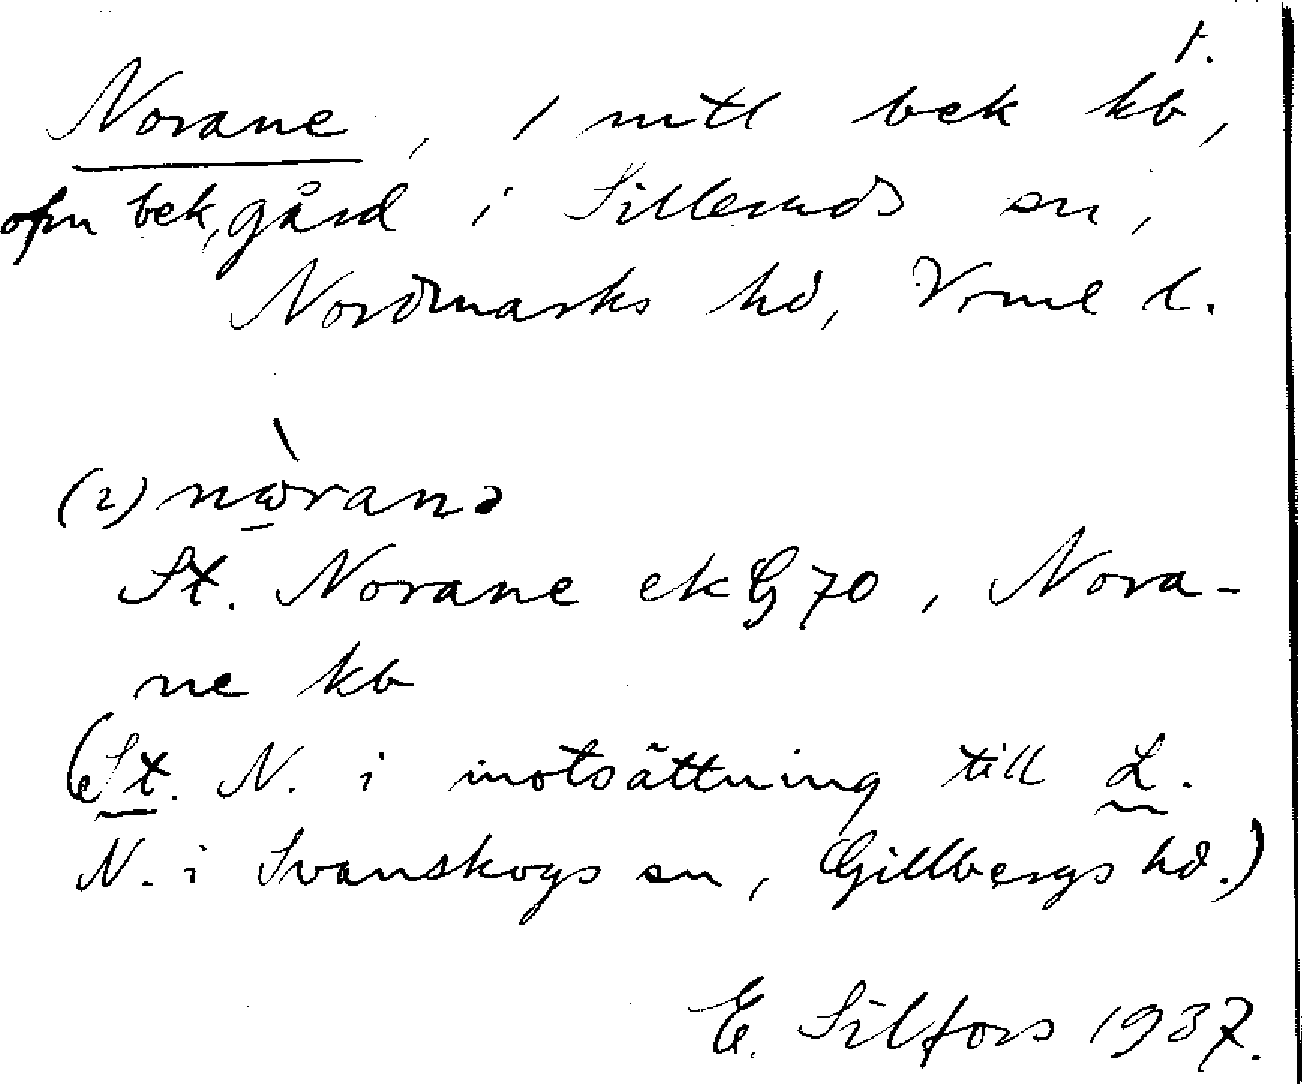 1.
Norane, 1 mtl bek kb,
ofu bek, gård i Silleruds sn,
Nordmarks hd, Vrml l.
(2) nὼranə
St. Norane ekG 70, Nora-
ne kb
(St. N. i motsättning till L.
N. i Svanskogs sn, Gillbergs hd.)
E. Silfors 1937.